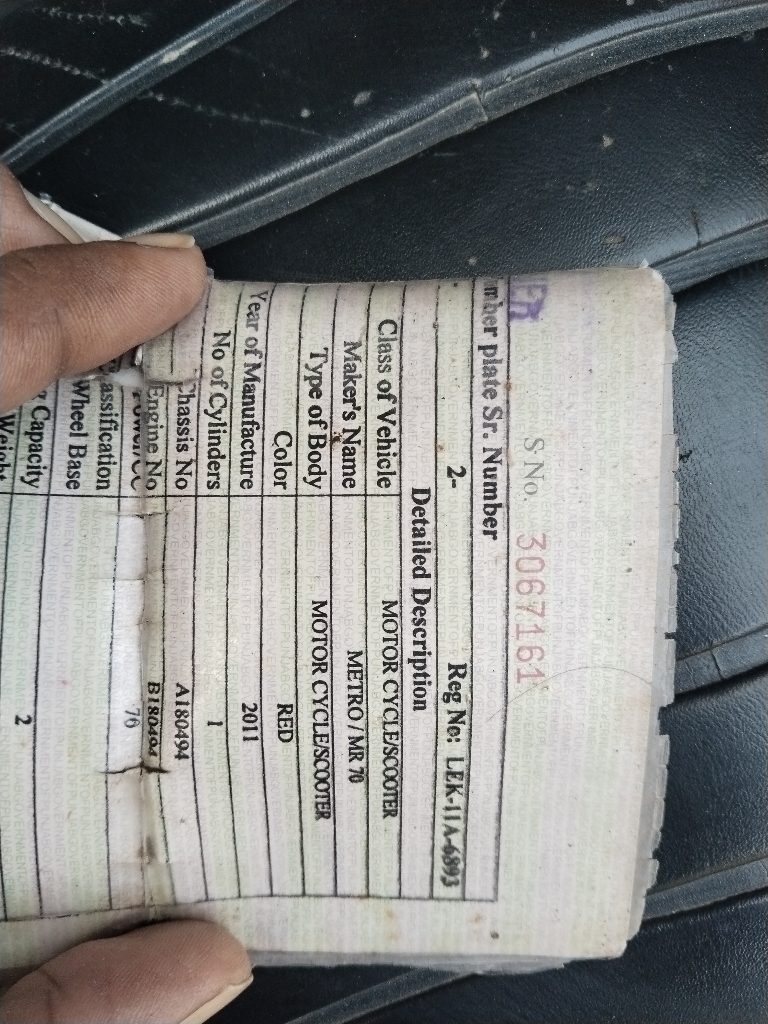 S No. 3067161
mber plate Sr. Number
2- Reg No: LEK-11A-6893
Detailed Description
Class of Vehicle MOTOR CYCLE/SCOOTER
Maker's Name METRO / MR 70
Type of Body MOTOR CYCLE/SCOOTER
Color RED
Year of Manufacture 2011
No of Cylinders 1
Chassis No A180494
Engine No B180494
70
assification
Wheel Base
g Capacity 2
Weight